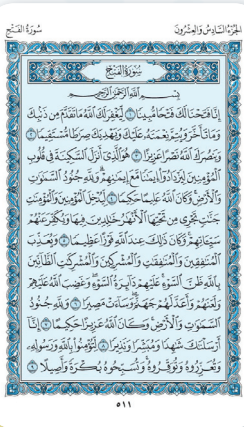 الجزء السادس والعشرون سورة الفتح
سُورَةُ الفَتْحِ
بِسْمِ اللَّهِ الرَّحْمَٰنِ الرَّحِيمِ
إِنَّا فَتَحْنَا لَكَ فَتْحًا مُّبِينًا ١ لِّيَغْفِرَ لَكَ اللَّهُ مَا تَقَدَّمَ مِن ذَنۢبِكَ
وَمَا تَأَخَّرَ وَيُتِمَّ نِعْمَتَهُۥ عَلَيْكَ وَيَهْدِيَكَ صِرَٰطًا مُّسْتَقِيمًا ٢
وَيَنصُرَكَ اللَّهُ نَصْرًا عَزِيزًا ٣ هُوَ الَّذِىٓ أَنزَلَ السَّكِينَةَ فِى قُلُوبِ
الْمُؤْمِنِينَ لِيَزْدَادُوٓا۟ إِيمَٰنًا مَّعَ إِيمَٰنِهِمْ ۗ وَلِلَّهِ جُنُودُ السَّمَٰوَٰتِ
وَالْأَرْضِ ۚ وَكَانَ اللَّهُ عَلِيمًا حَكِيمًا ٤ لِّيُدْخِلَ الْمُؤْمِنِينَ وَالْمُؤْمِنَٰتِ
جَنَّٰتٍ تَجْرِى مِن تَحْتِهَا الْأَنْهَٰرُ خَٰلِدِينَ فِيهَا وَيُكَفِّرَ عَنْهُمْ
سَيِّـَٔاتِهِمْ ۚ وَكَانَ ذَٰلِكَ عِندَ اللَّهِ فَوْزًا عَظِيمًا ٥ وَيُعَذِّبَ
الْمُنَٰفِقِينَ وَالْمُنَٰفِقَٰتِ وَالْمُشْرِكِينَ وَالْمُشْرِكَٰتِ الظَّآنِّينَ
بِاللَّهِ ظَنَّ السَّوْءِ ۚ عَلَيْهِمْ دَآئِرَةُ السَّوْءِ ۖ وَغَضِبَ اللَّهُ عَلَيْهِمْ
وَلَعَنَهُمْ وَأَعَدَّ لَهُمْ جَهَنَّمَ ۖ وَسَآءَتْ مَصِيرًا ٦ وَلِلَّهِ جُنُودُ
السَّمَٰوَٰتِ وَالْأَرْضِ ۚ وَكَانَ اللَّهُ عَزِيزًا حَكِيمًا ٧ إِنَّآ
أَرْسَلْنَٰكَ شَٰهِدًا وَمُبَشِّرًا وَنَذِيرًا ٨ لِّتُؤْمِنُوا۟ بِاللَّهِ وَرَسُولِهِۦ
وَتُعَزِّرُوهُ وَتُوَقِّرُوهُ ۚ وَتُسَبِّحُوهُ بُكْرَةً وَأَصِيلًا ٩
٥١١